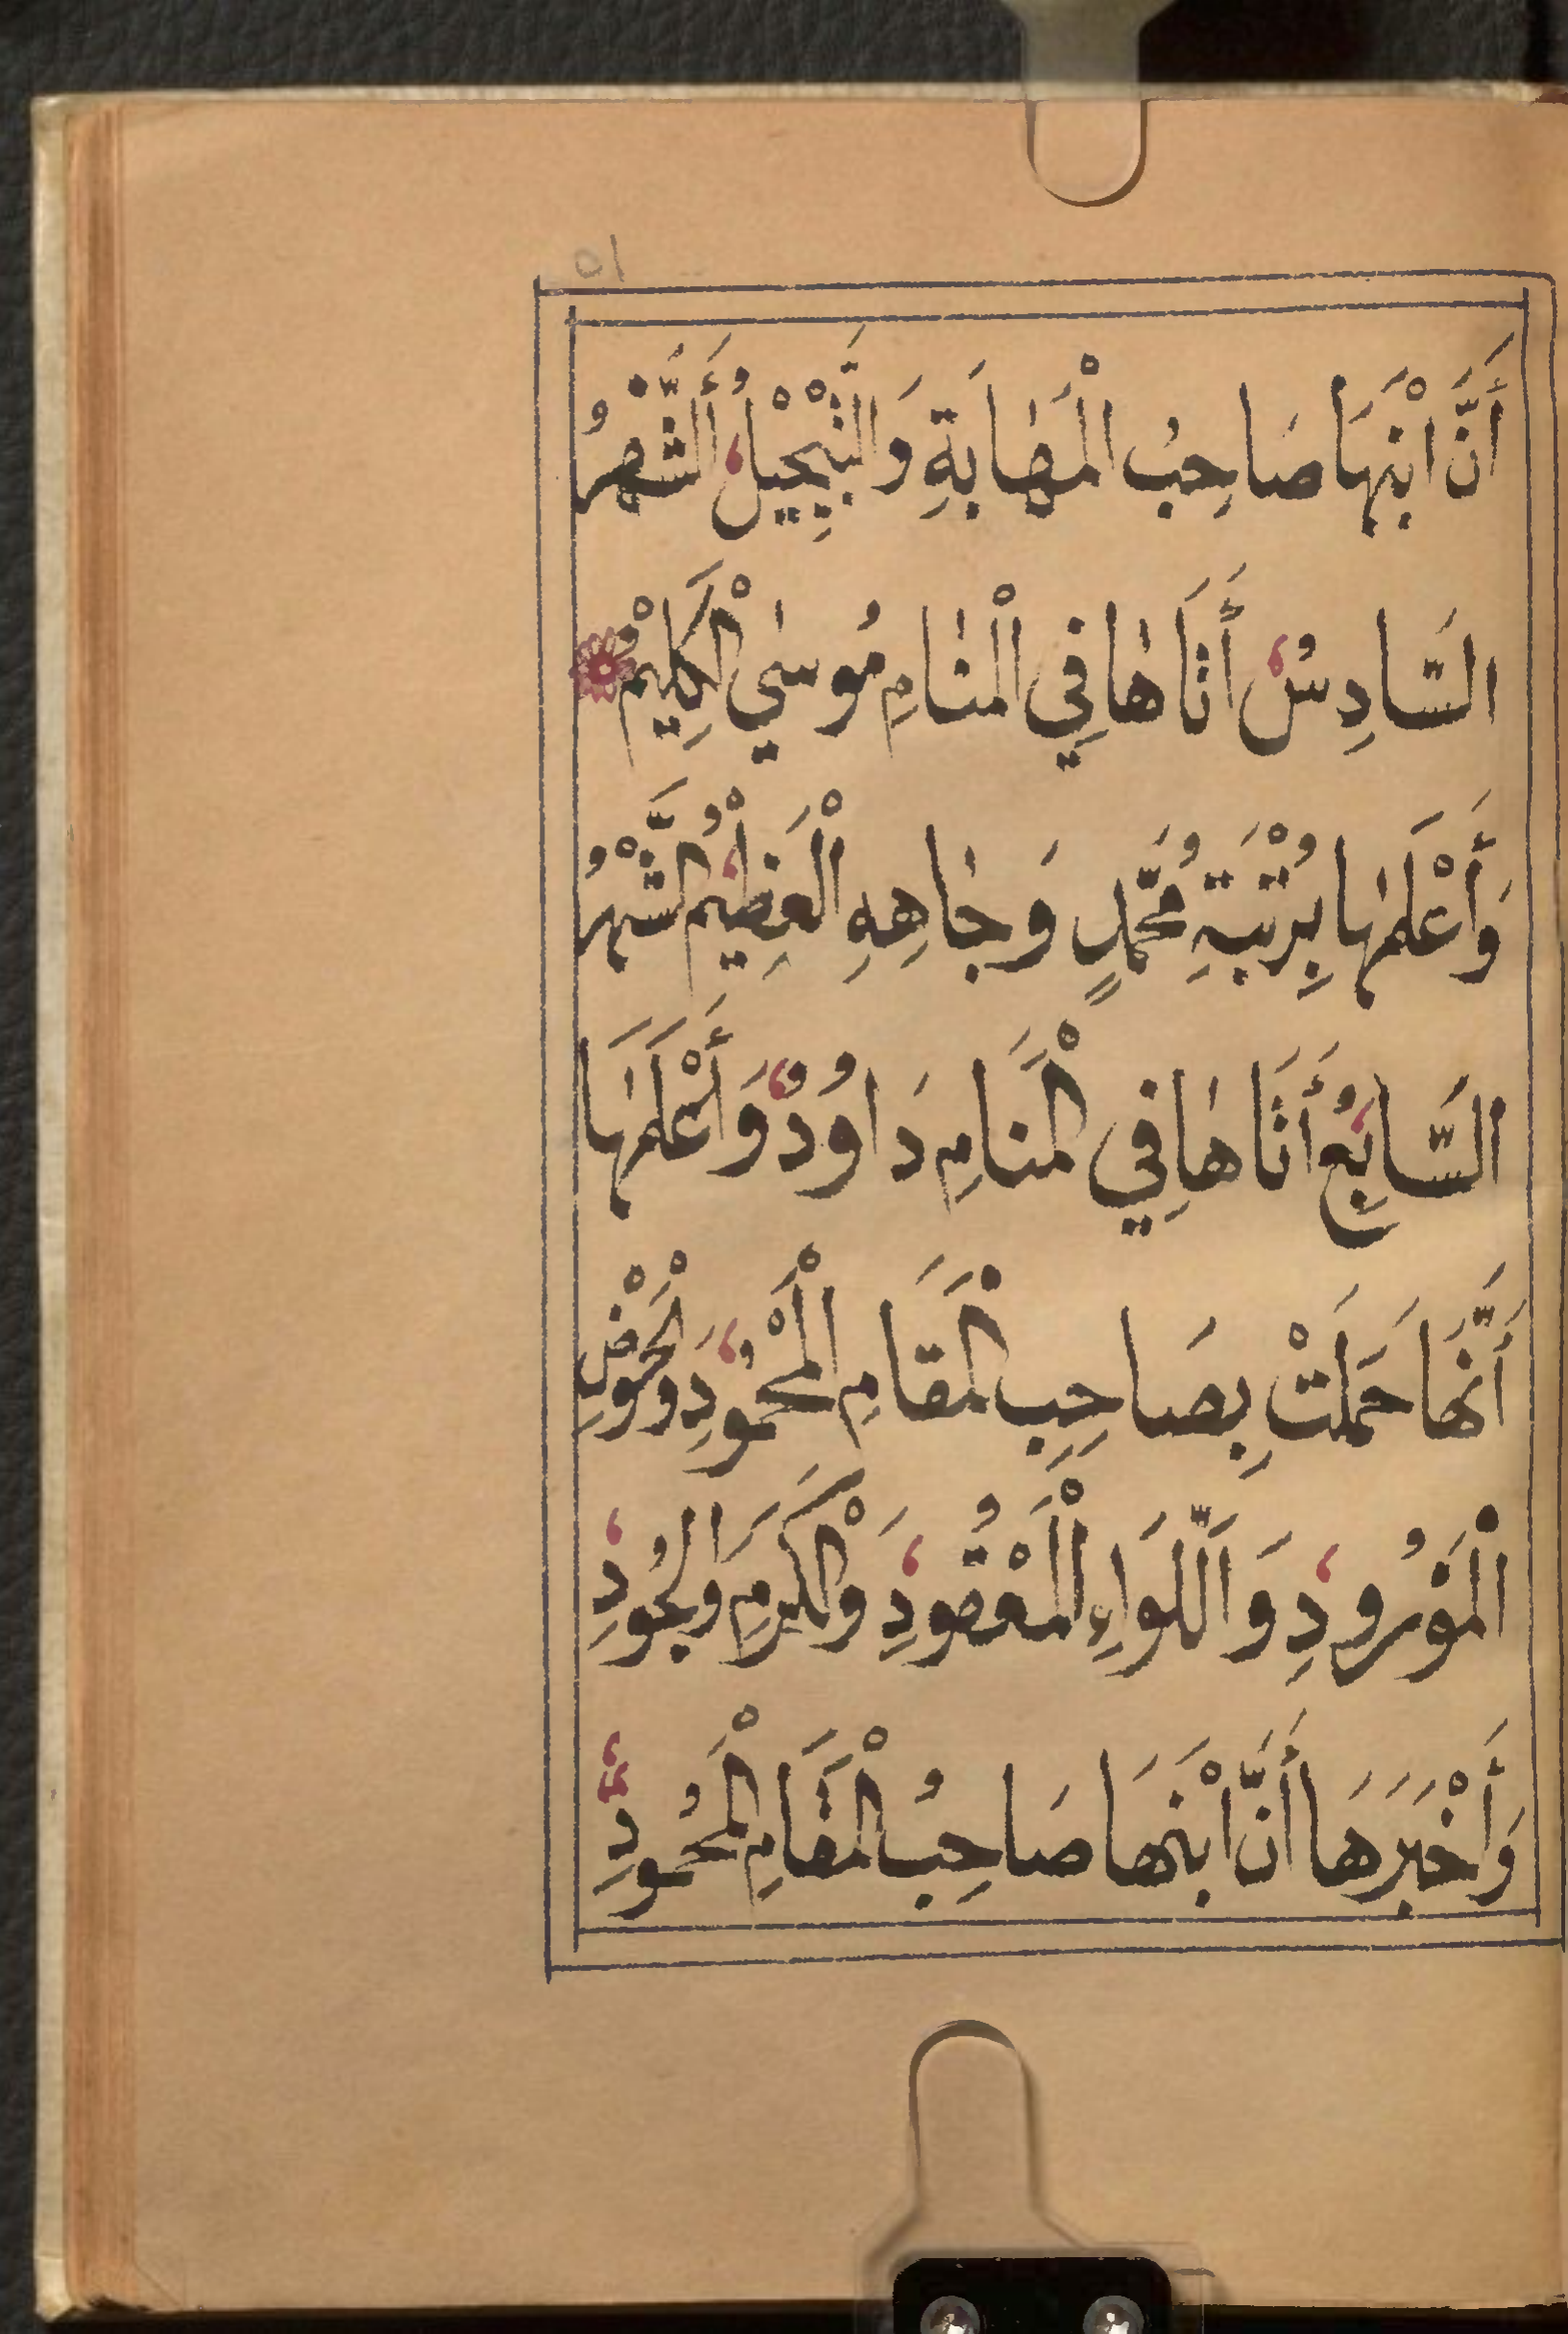 ٥١
أَنَّ ابْنَهَا صَاحِبُ الْمَهَابَةِ وَالتَّبْجِيْلُ، أَلشَّهْرُ
السَّادِسُ، أَتَاهَا فِي الْمَنَامِ مُوسٰى الْكَلِيْمْ
وَأَعْلَمَهَا بِرُتْبَةِ مُحَمَّدٍ وَجَاهِهِ الْعَظِيْمْ، أُلشَّهْرُ
السَّابِعُ، أَتَاهَا فِي الْمَنَامِ دَاوُدُ، وَأَعْلَمَهَا
أَنَّهَا حَمَلَتْ بِصَاحِبِ الْمَقَامِ الْمَحْمُوْدِ، وَلْحَوْضِ
الْمَوْرُودِ، وَاللِّوَاءِ الْمَعْقُودِ، وَلْكَرَمِ وَالْجُودِ،
وَأَخْبَرَهَا أَنَّ ابْنَهَا صَاحِبُ الْمَقَامِ الْمَحْمُودِ،